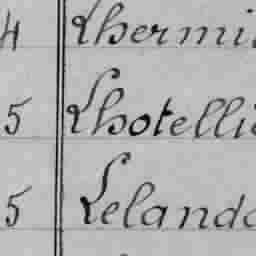 4 Lhermi
5 Lhotelli
5 Leland